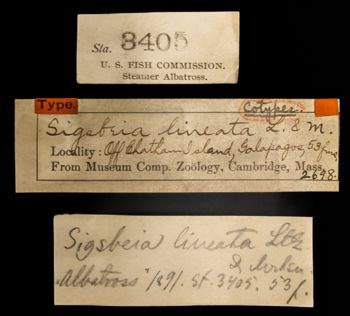 Sta. 3405
U. S. FISH COMMISSION.
Steamer Albatross.
Type.
Cotypes.
Sigsbeia lineata L. & M.
Locality: Off Chatham Island, Galapagos, 53 fms.
From Museum Comp. Zoölogy, Cambridge, Mass.
2698.
Sigsbeia lineata Ltk
&
"Albatross" 1891. St. 3405. 53 f.